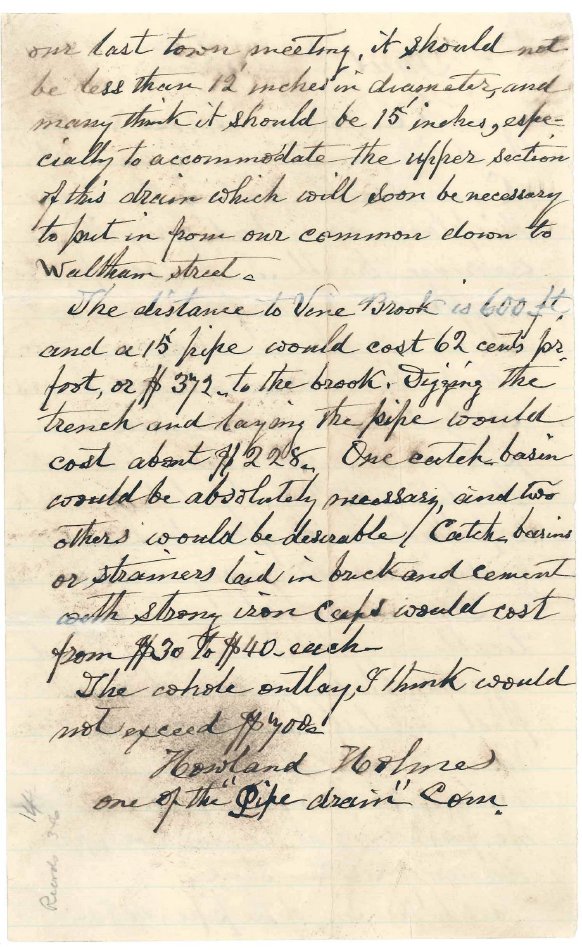 our last town meeting, it should not
be less than 12 inches in diameter, and
many think it should be 15 inches, espe-
cially to accommodate the upper section
of this drain which will soon be necessary
to put in from our common down to
Waltham street.
The distance to Vine Brook is 600 ft,
and a 15 pipe would cost 62 cents pr
foot, or $372, to the brook. Digging the
trench and laying the pipe would
cost about $228. One catch-basin
would be absolutely necessary, and two
others would be deserable / Catch-basins
or strainers laid in brick and cement
with strong iron caps would cost
from $30 to $40 each
The whole outlay, I think would
not exceed $700.
Howland Holmes
one of the "Pipe drain" Com.
14
36